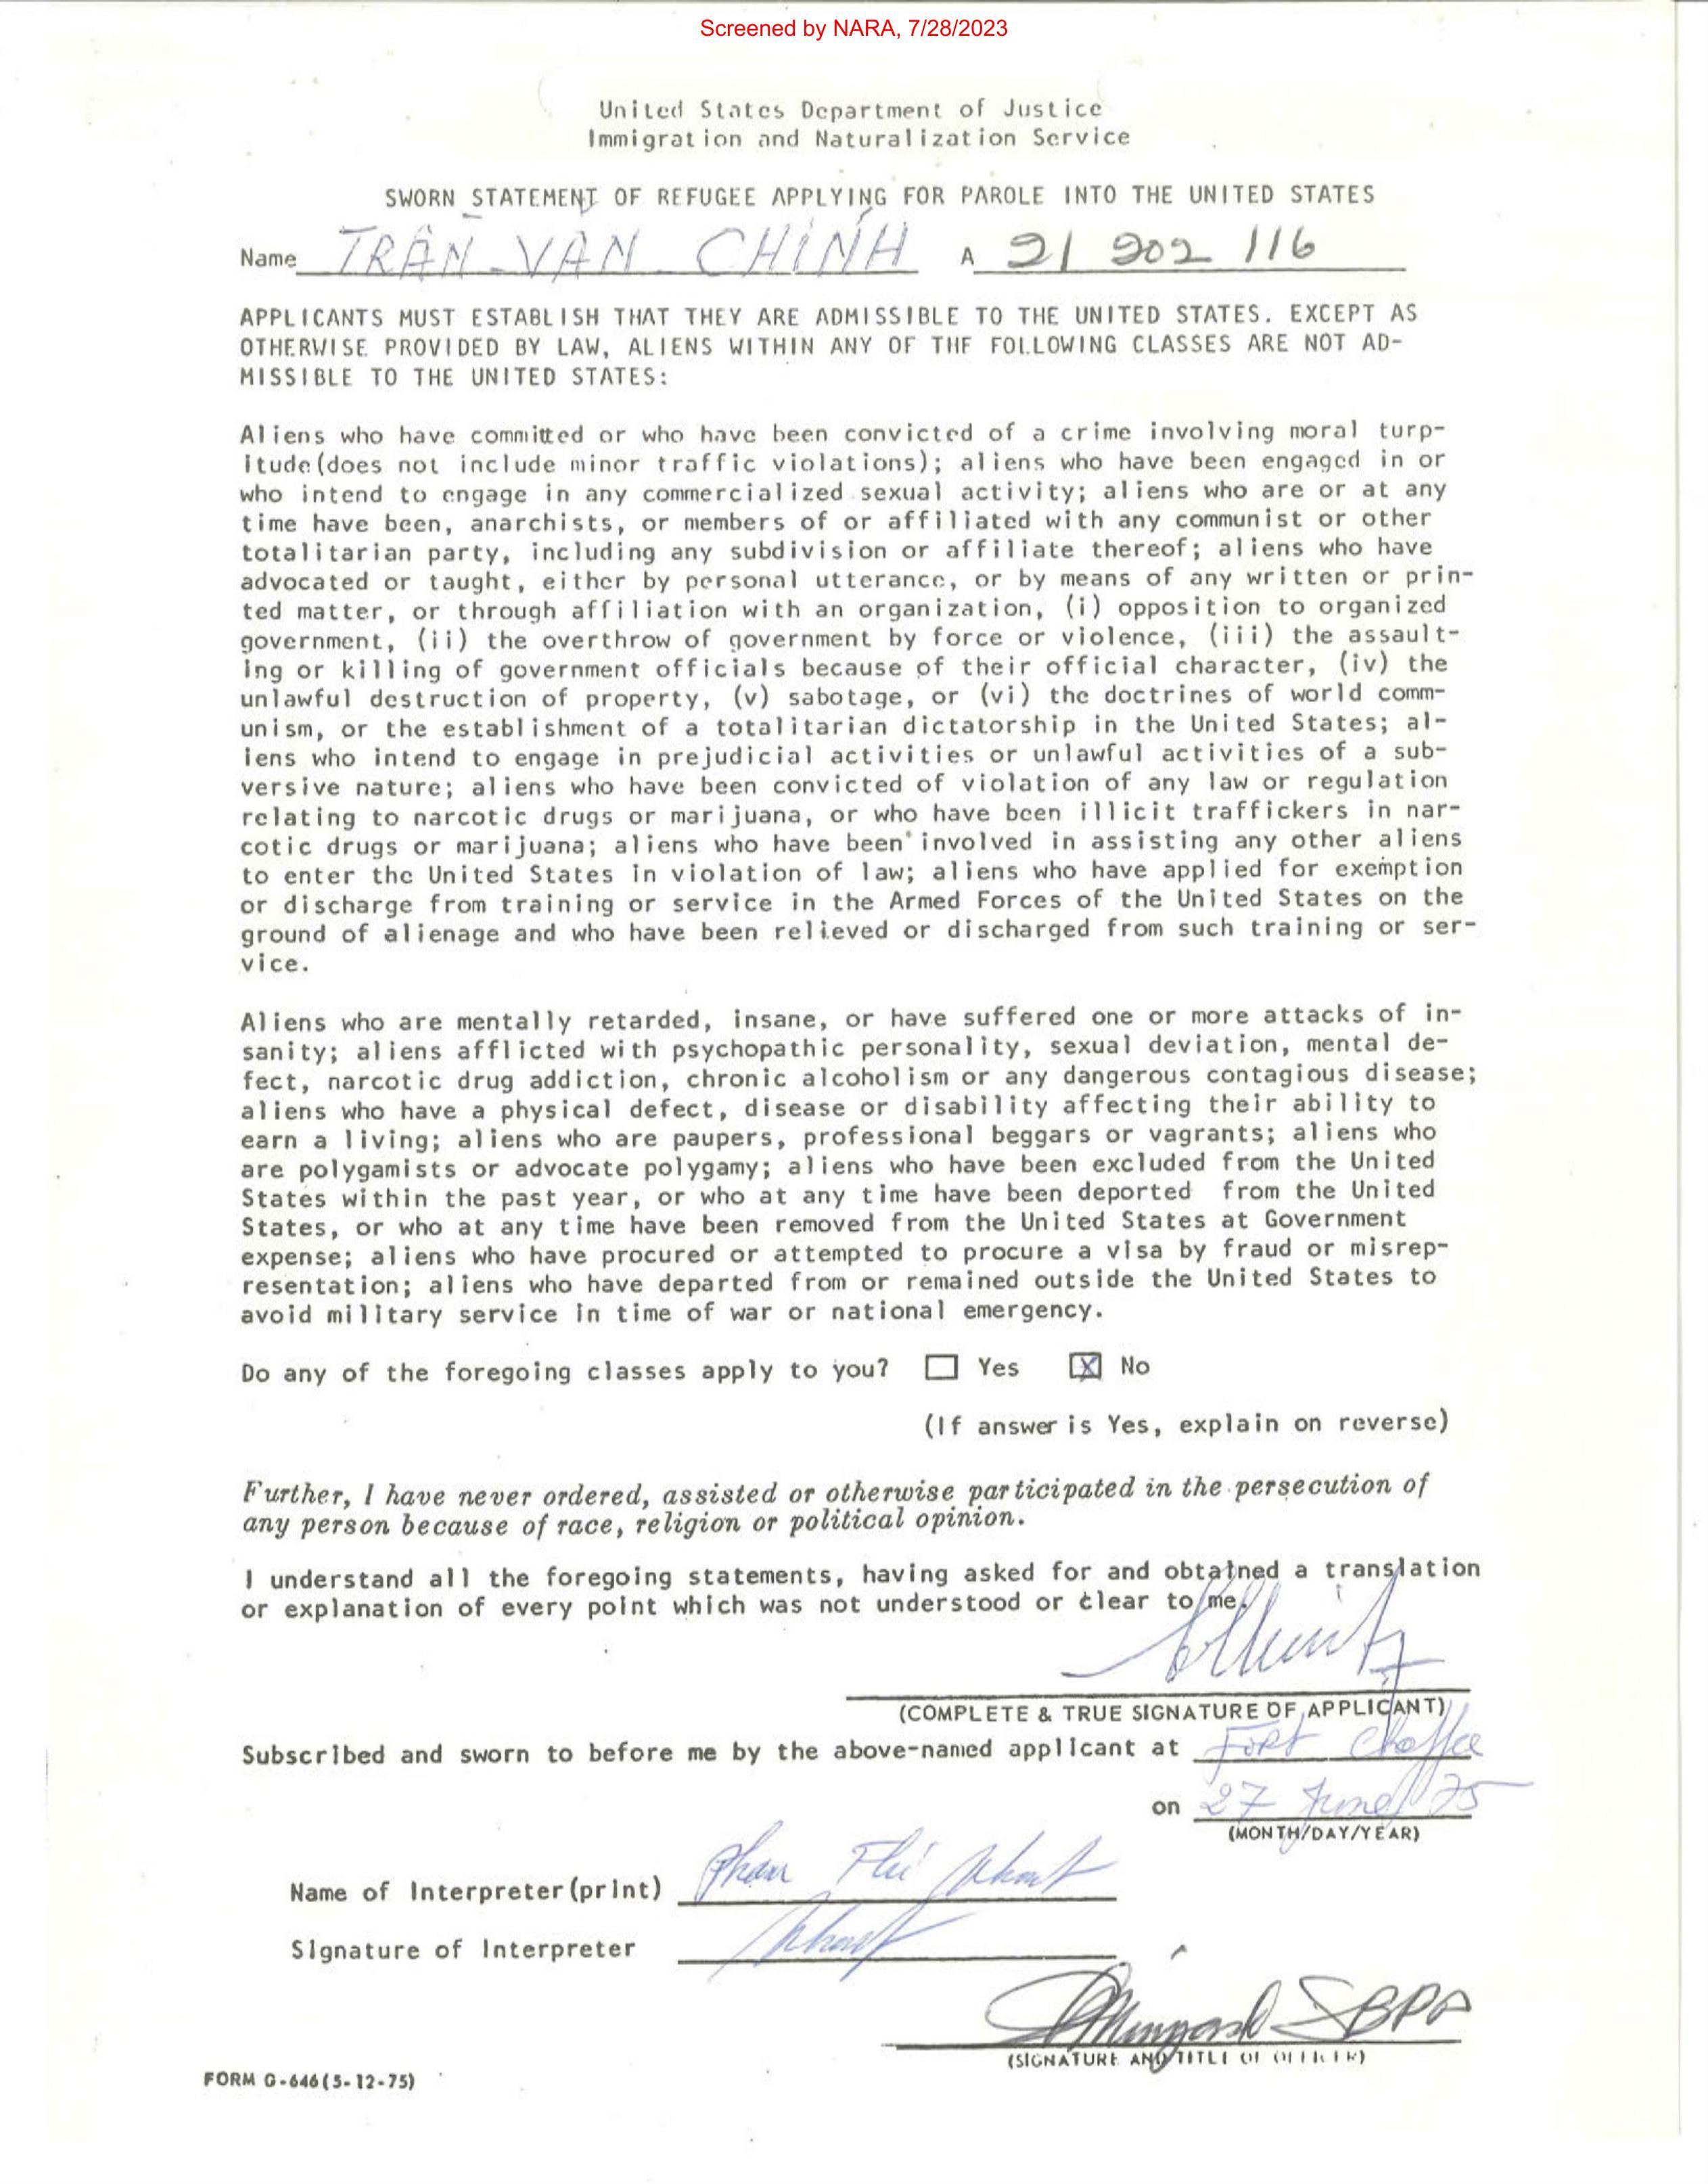 Screened by NARA, 7/28/2023
United States Department of Justice
Immigration and Naturalization Service
SWORN STATEMENT OF REFUGEE APPLYING FOR PAROLE INTO THE UNITED STATES
Name TRÂN-VAN CHÍNH A 21 202 116
APPLICANTS MUST ESTABLISH THAT THEY ARE ADMISSIBLE TO THE UNITED STATES. EXCEPT AS
OTHERWISE PROVIDED BY LAW, ALIENS WITHIN ANY OF THE FOLLOWING CLASSES ARE NOT AD-
MISSIBLE TO THE UNITED STATES:
Aliens who have committed or who have been convicted of a crime involving moral turp-
itude(does not include minor traffic violations); aliens who have been engaged in or
who intend to engage in any commercialized sexual activity; aliens who are or at any
time have been, anarchists, or members of or affiliated with any communist or other
totalitarian party, including any subdivision or affiliate thereof; aliens who have
advocated or taught, either by personal utterance, or by means of any written or prin-
ted matter, or through affiliation with an organization, (i) opposition to organized
government, (ii) the overthrow of government by force or violence, (iii) the assault-
ing or killing of government officials because of their official character, (iv) the
unlawful destruction of property, (v) sabotage, or (vi) the doctrines of world comm-
unism, or the establishment of a totalitarian dictatorship in the United States; al-
iens who intend to engage in prejudicial activities or unlawful activities of a sub-
versive nature; aliens who have been convicted of violation of any law or regulation
relating to narcotic drugs or marijuana, or who have been illicit traffickers in nar-
cotic drugs or marijuana; aliens who have been involved in assisting any other aliens
to enter the United States in violation of law; aliens who have applied for exemption
or discharge from training or service in the Armed Forces of the United States on the
ground of alienage and who have been relieved or discharged from such training or ser-
vice.
Aliens who are mentally retarded, insane, or have suffered one or more attacks of in-
sanity; aliens afflicted with psychopathic personality, sexual deviation, mental de-
fect, narcotic drug addiction, chronic alcoholism or any dangerous contagious disease;
aliens who have a physical defect, disease or disability affecting their ability to
earn a living; aliens who are paupers, professional beggars or vagrants; aliens who
are polygamists or advocate polygamy; aliens who have been excluded from the United
States within the past year, or who at any time have been deported from the United
States, or who at any time have been removed from the United States at Government
expense; aliens who have procured or attempted to procure a visa by fraud or misrep-
resentation; aliens who have departed from or remained outside the United States to
avoid military service in time of war or national emergency.
Do any of the foregoing classes apply to you? Yes X No
(If answer is Yes, explain on reverse)
Further, I have never ordered, assisted or otherwise participated in the persecution of
any person because of race, religion or political opinion.
I understand all the foregoing statements, having asked for and obtained a translation
or explanation of every point which was not understood or clear to me.
(COMPLETE & TRUE SIGNATURE OF APPLICANT)
Subscribed and sworn to before me by the above-named applicant at Fort Chaffee
on 27 June 75
(MONTH/DAY/YEAR)
Name of Interpreter(print) Phan
Signature of Interpreter
(SIGNATURE AND TITLE OF OFFICER)
FORM G-646(5-12-75)